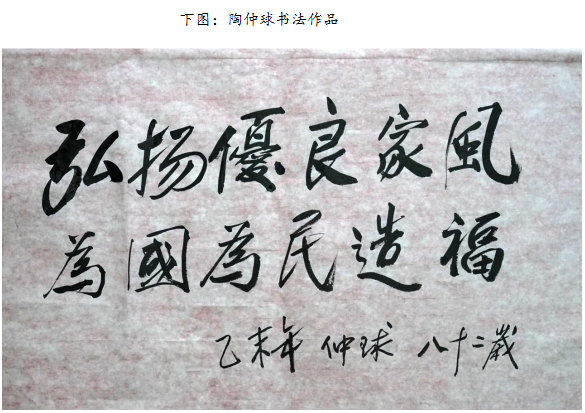 下图：陶仲球书法作品
弘扬優良家風
為國為民造福
乙未年 仲球 八十二歲